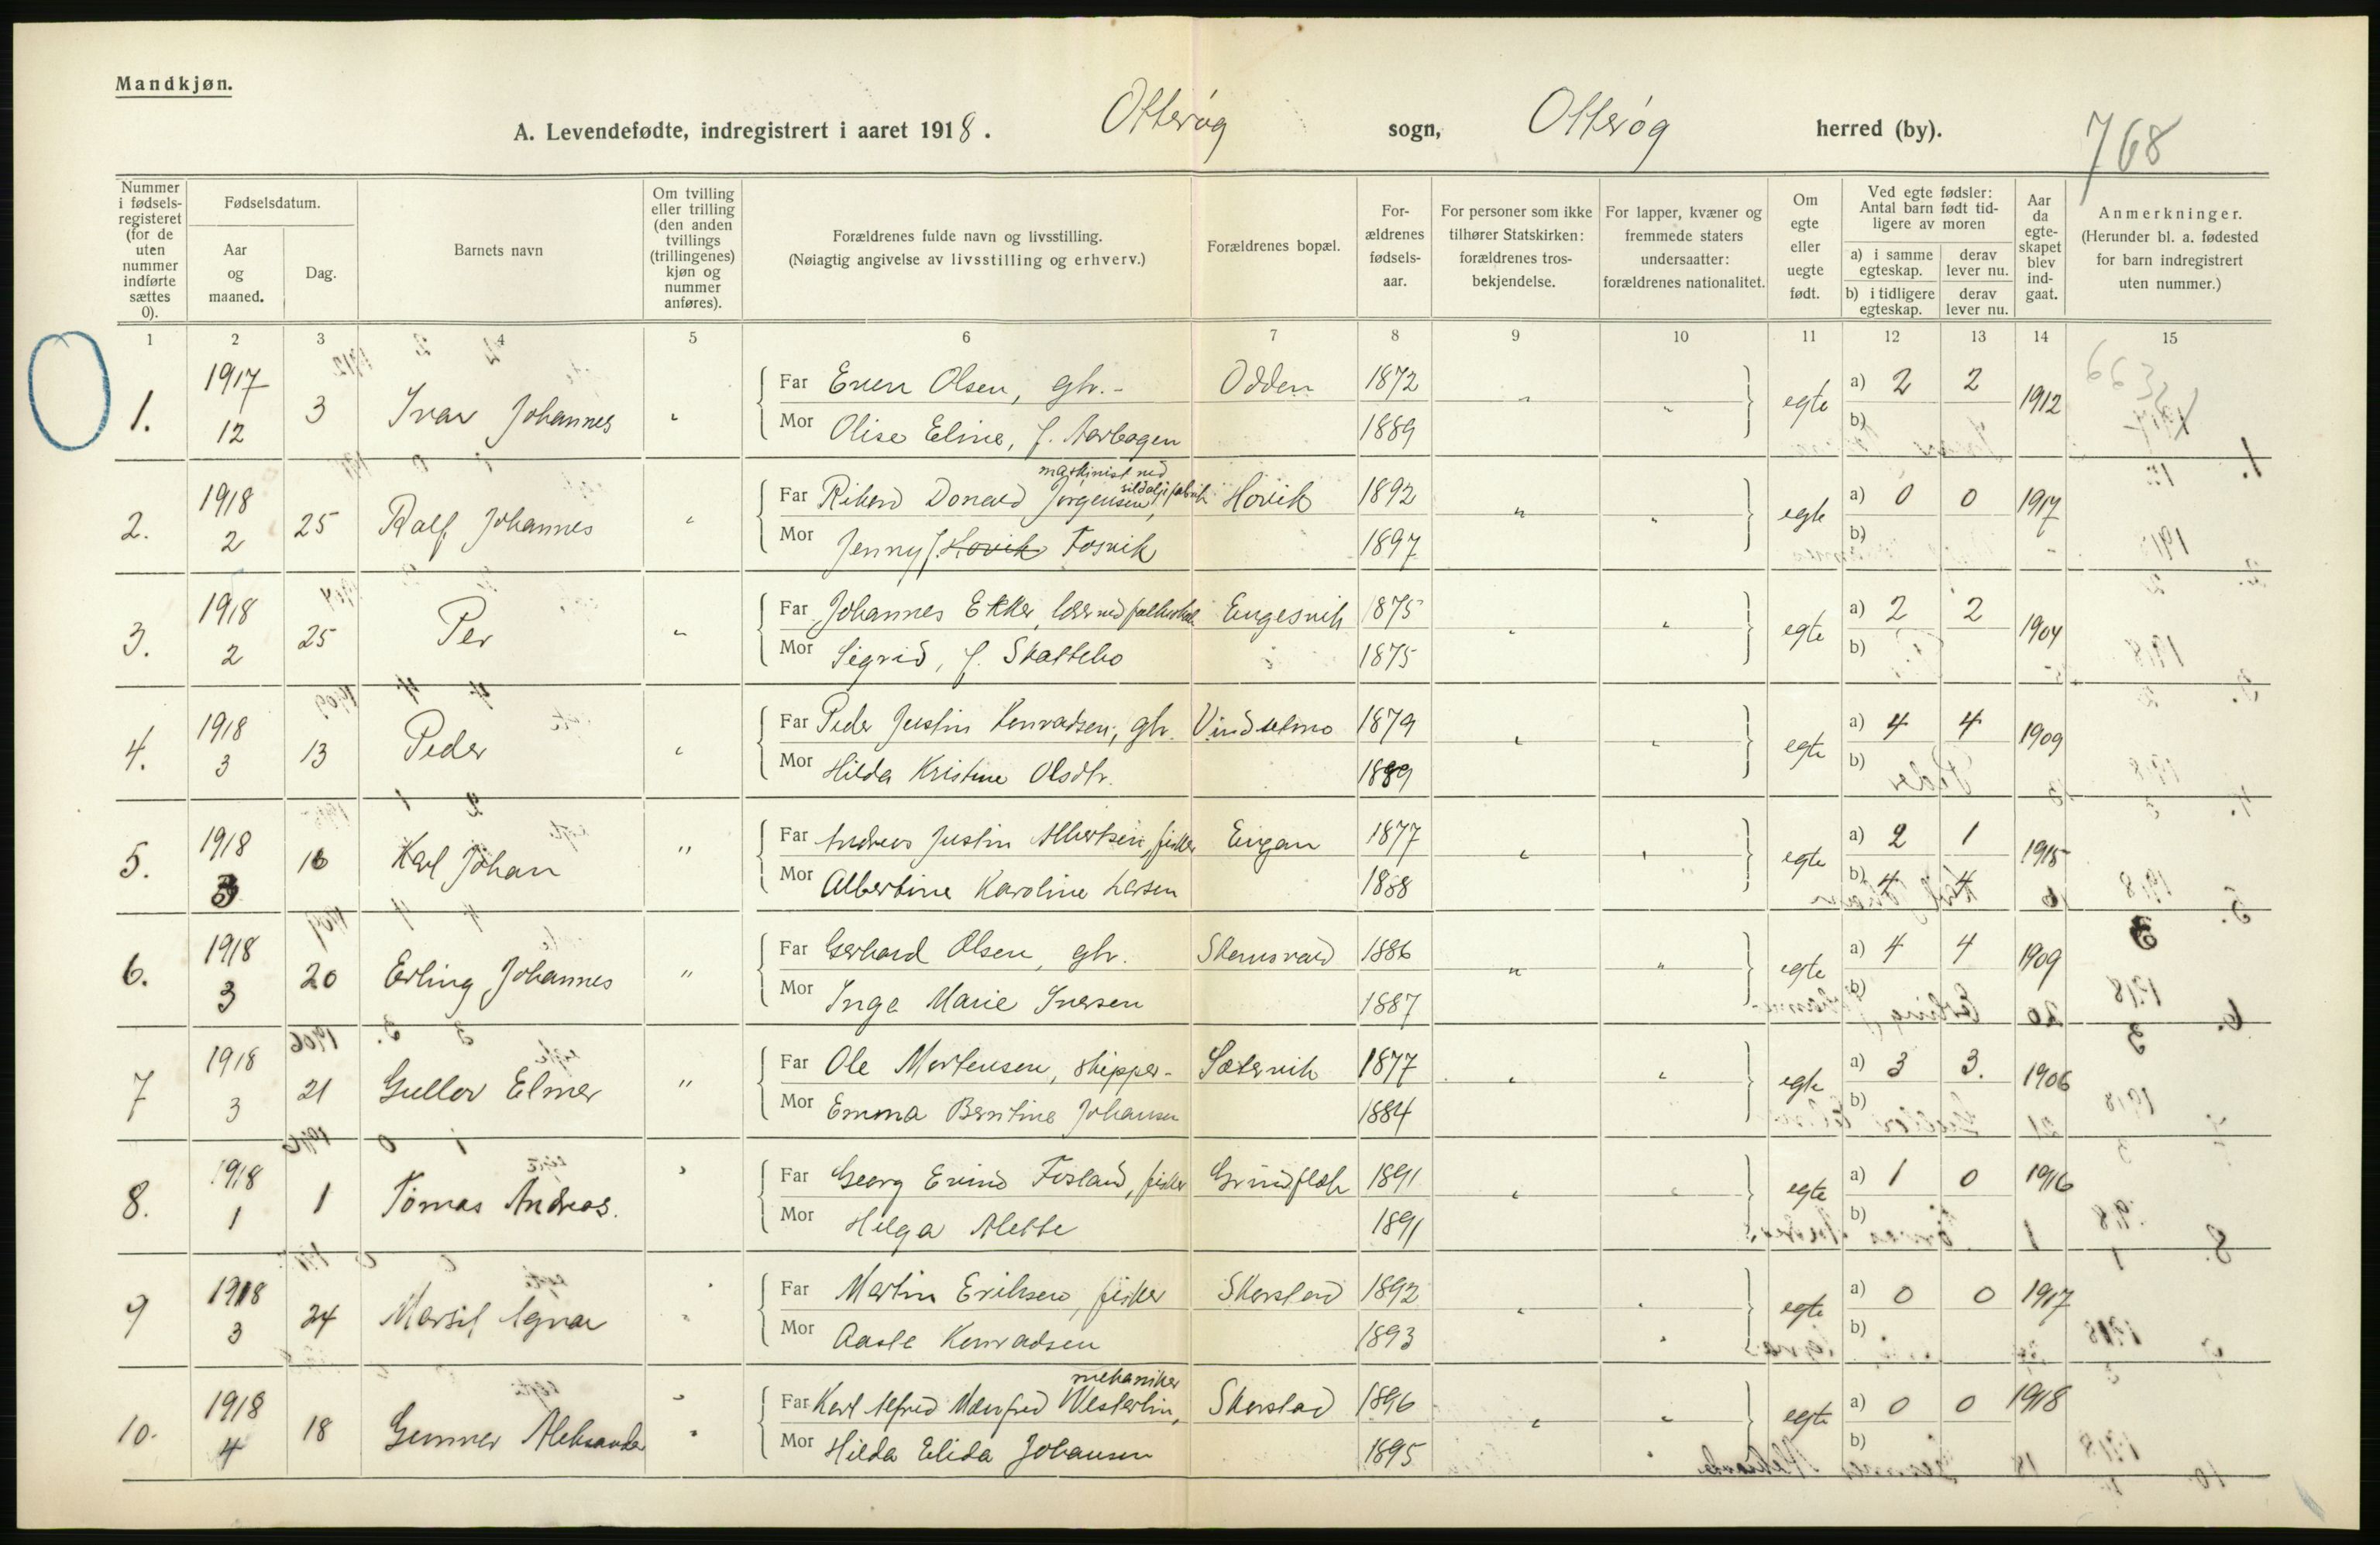 Mandkjøn.
A. Levendefødte, indregistrert i aaret 1918. Otterøy sogn, Otterøy herred (by).
768
Nummer i fødsels-registeret (for de uten nummer indførte sættes 0).
Fødselsdatum.
Aar og maaned.
Dag.
Barnets navn
Om tvilling eller trilling (den anden tvillings (trillingenes) kjøn og nummer anføres).
Forældrenes fulde navn og livsstilling.
(Nøiagtig angivelse av livsstilling og erhverv.)
Forældrenes bopæl.
For-ældrenes fødsels-aar.
For personer som ikke tilhører Statskirken: forældrenes tros-bekjendelse.
For lapper, kvæner og fremmede staters undersaatter: forældrenes nationalitet.
Om egte eller uegte født.
Ved egte fødsler: Antal barn født tid-ligere av moren
a) i samme egteskap. derav lever nu.
b) i tidligere egteskap. derav lever nu.
Aar da egte-skapet blev ind-gaat.
Anmerkninger.
(Herunder bl. a. fødested for barn indregistrert uten nummer.)
1 2 3 4 5 6 7 8 9 10 11 12 13 14 15
1. 1917 12 3 Ivar Johannes " Far Even Olsen, gbr. - Odden 1872 " " egte a) 2 2 1912
Mor Olise Eline, f. Aarbogen 1889 b)
maskinist ved
sildoljefabrik
2. 1918 2 25 Ralf Johannes " Far Rikard Donald Jørgensen, Hovik 1892 " " egte a) 0 0 1917
Mor Jenny f. Hovik Fosvik 1897 b)
3. 1918 2 25 Per " Far Johannes Ekker, Engesvik 1875 " " egte a) 2 2 1904
Mor Sigrid, f. Skattebo 1875 b)
4. 1918 3 13 Peder " Far Peder Justin Konradsen, gbr. Vindselmo 1879 " " egte a) 4 4 1909
Mor Hilda Kristine Olsdtr. 1889 b)
5. 1918 3 16 Karl Johan " Far Andreas Justin Albertsen, fisker Engan 1877 " " egte a) 2 1 1915
Mor Albertine Karoline Larsen 1888 b) 4 4
6. 1918 3 20 Erling Johannes " Far Gerhard Olsen, gbr. Skomsvold 1886 " " egte a) 4 4 1909
Mor Inga Marie Iversen 1887 b)
7 1918 3 21 Gullov Elmer " Far Ole Mortensen, skipper - Sætervik 1877 " " egte a) 3 3. 1906
Mor Emma Berntine Johansen 1884 b)
8. 1918 1 1 Tomas Andreas. " Far Georg Evind Fosland, fisker 1891 " " egte a) 1 0 1916
Mor Helga Alette 1891 b)
9 1918 3 24 Marsil Agnar " Far Martin Eriksen, fisker Skorstad 1892 " " egte a) 0 0 1917
Mor Aaste Konradsen 1893 b)
mekaniker
10. 1918 4 18 Gunner Aleksander " Far Karl Alfred Manfred Westerlin, Skorstad 1896 " " egte a) 0 0 1918
Mor Hilda Elida Johansen 1895 b)